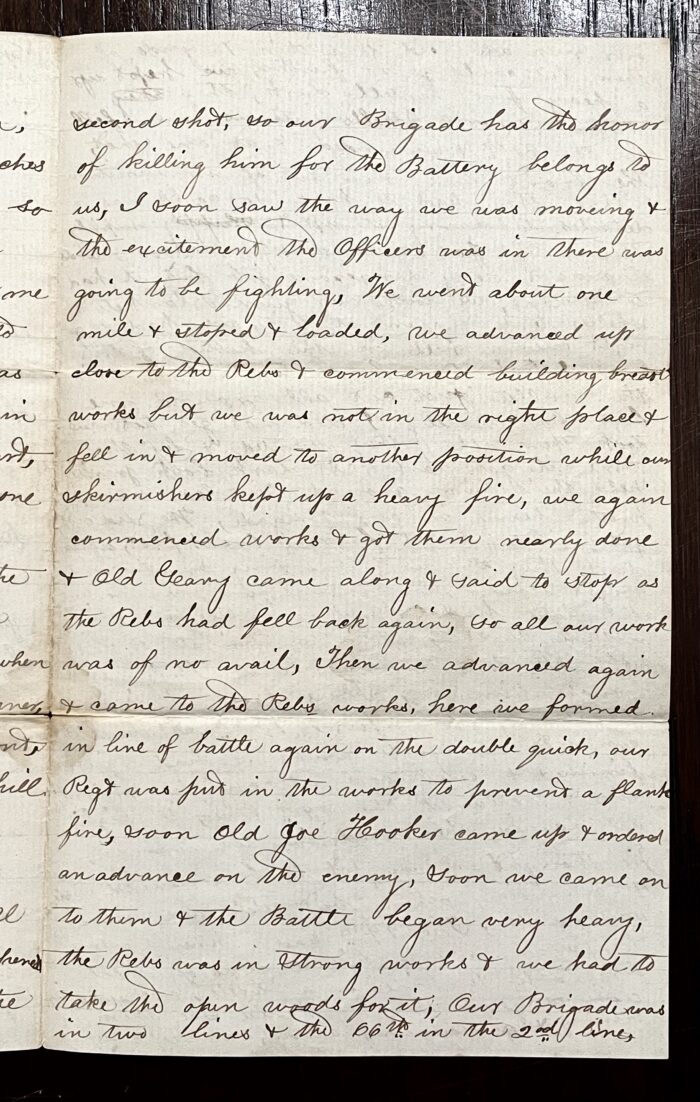 second shot, so our Brigade has the honor
of killing him for the Battery belongs to
us, I soon saw the way we was moveing &
the excitement the Officers was in there was
going to be fighting, We went about one
mile & stoped & loaded, we advanced up
close to the Rebs & commenced building breast
works but we was not in the right place &
fell in & moved to another position while our
skirmishers kept up a heavy fire, we again
commenced works & got them nearly done
& Old Geary came along & said to stop as
the Rebs had fell back again, so all our work
was of no avail, Then we advanced again
& came to the Rebs works, here we formed
in line of battle again on the double quick, our
Regt was put in the works to prevent a flank
fire, soon Old Joe Hooker came up & ordered
an advance on the enemy, soon we came on
to them & the Battle began very heavy,
the Rebs was in strong works & we had to
take the open woods for it, Our Brigade was
in two lines & the 66th in the 2nd line,